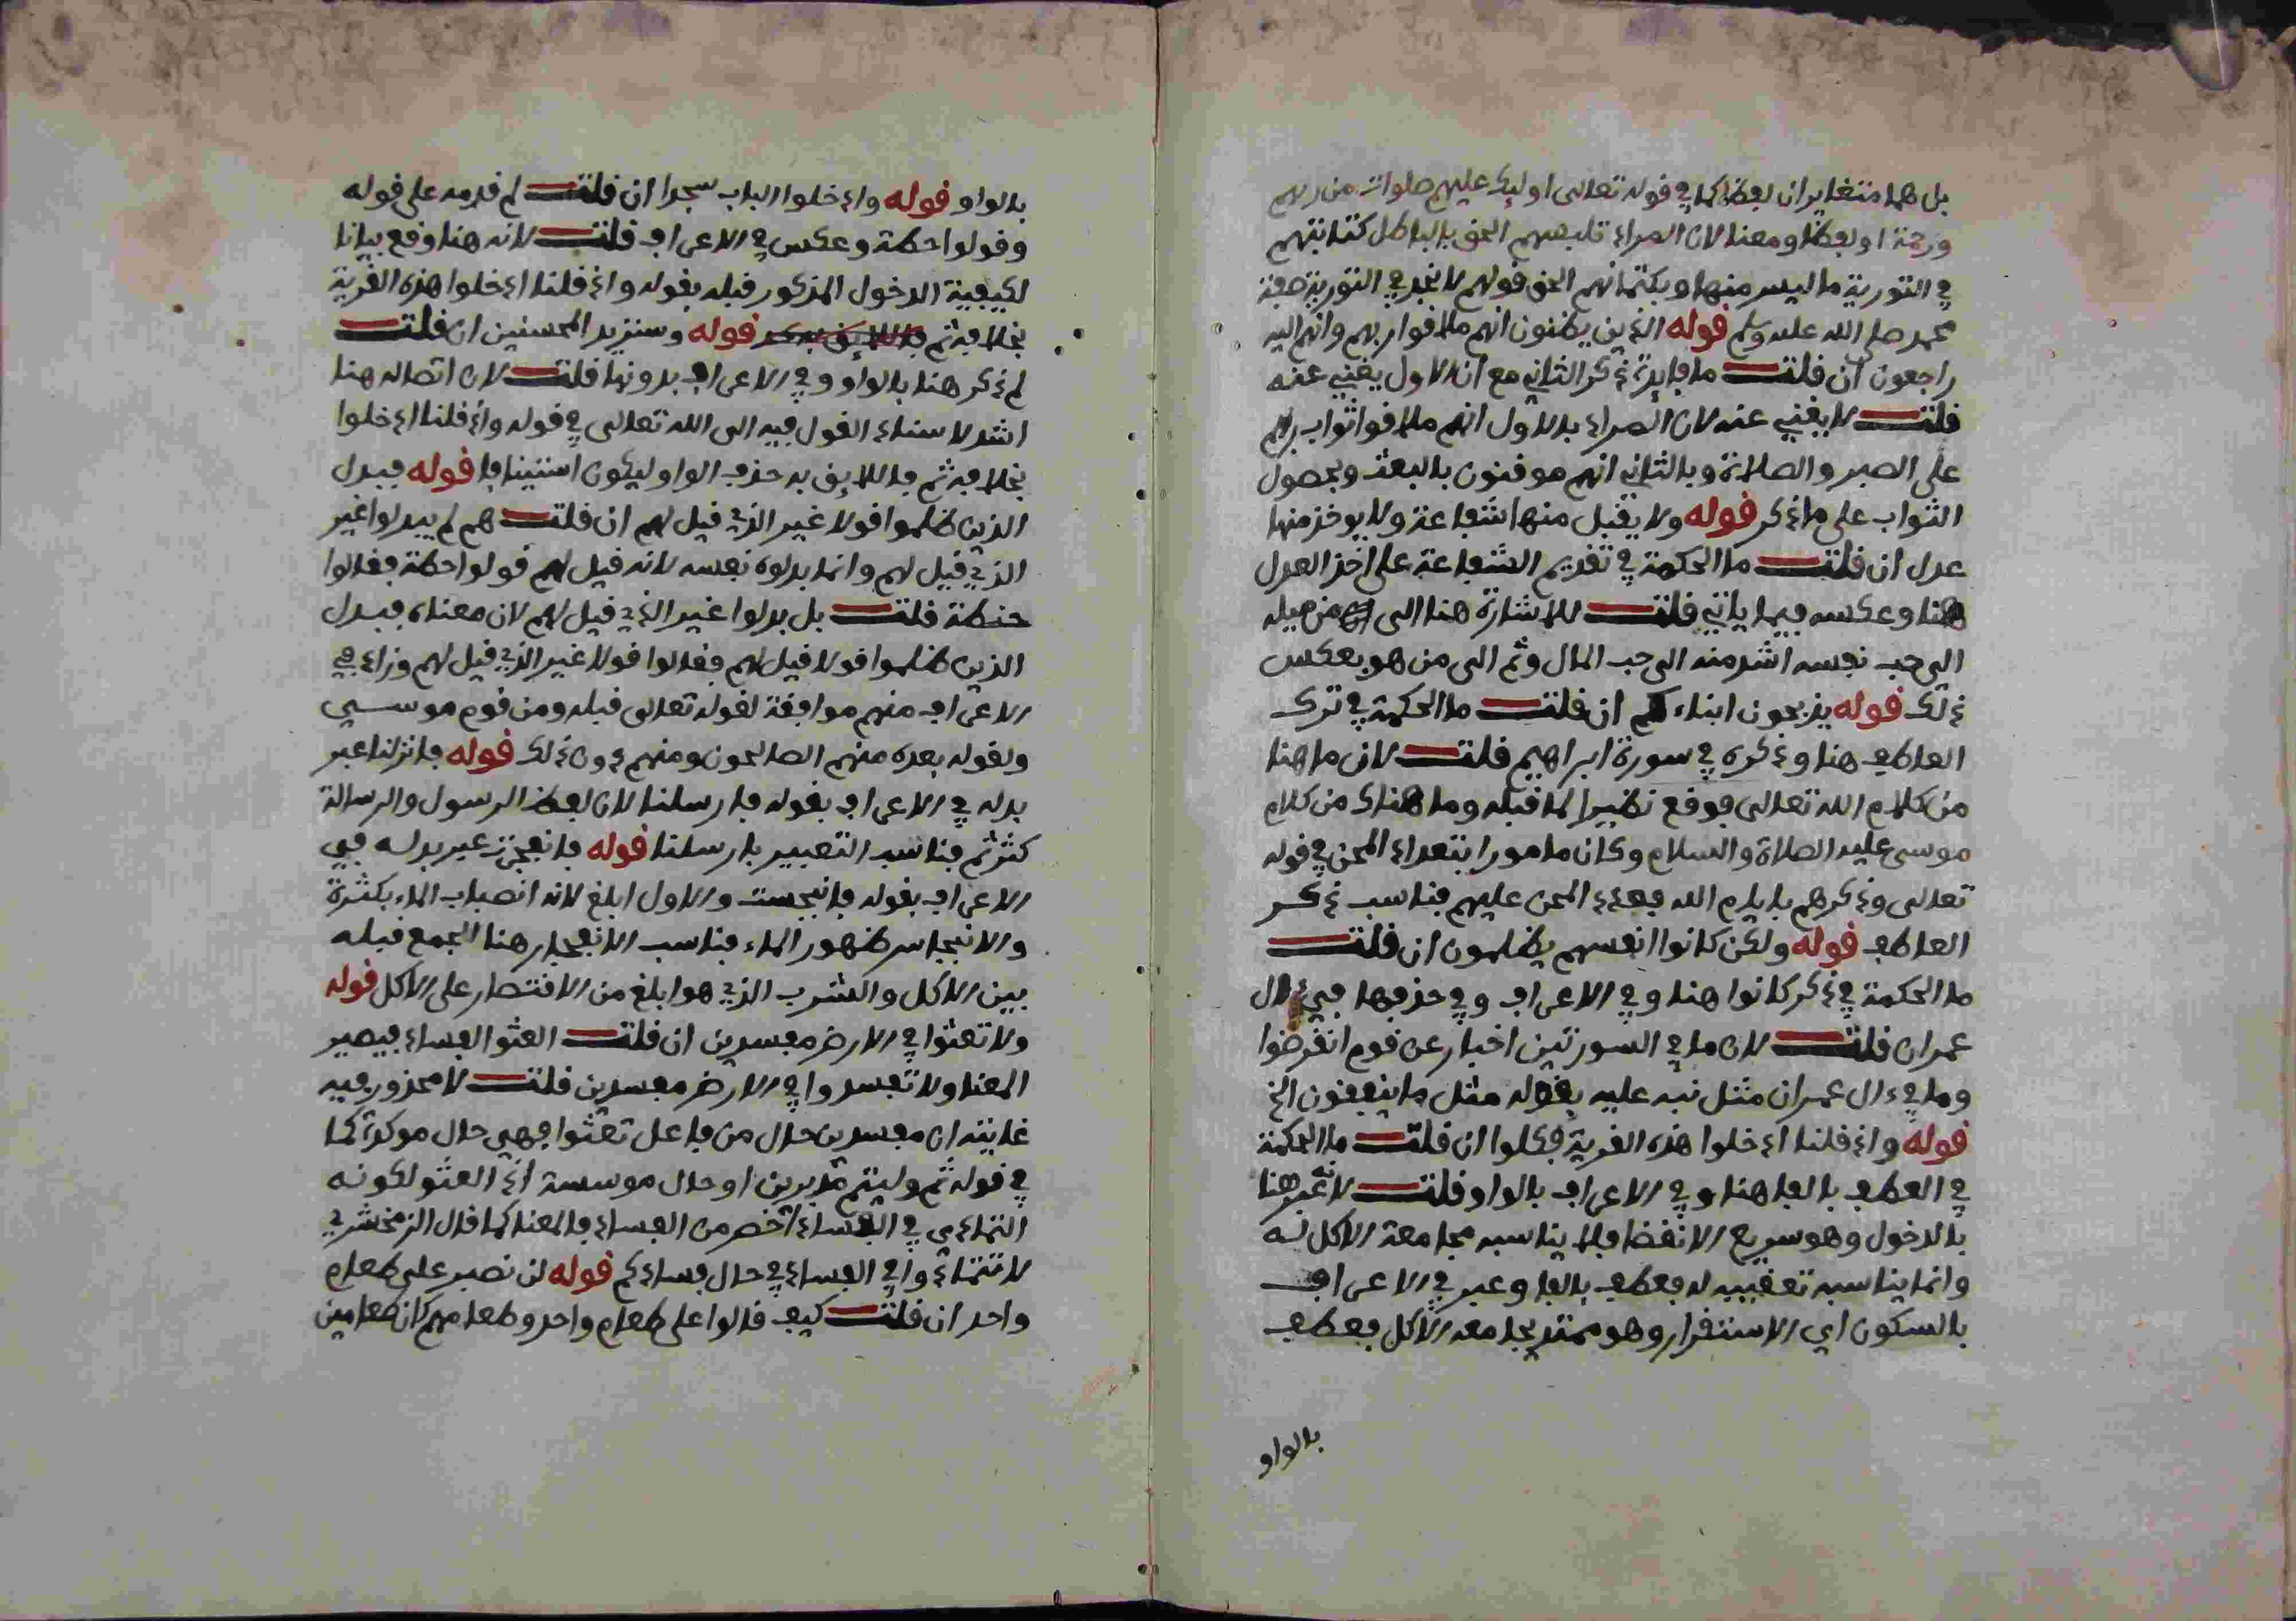 بل هما متغايران لفظا كما في قوله تعالى اوليك عليهم صلوات من ربهم
ورحمة او لفظا ومعنا لان المراد تلبسهم الحق بالباطل كتابتهم
في التورية ما ليس منها وبكتمانهم الحق قولهم لا نجد في التورية صفة
محمد صلى الله عليه وسلم قوله الذين يظنون انهم ملاقوا ربهم وانهم اليه
راجعون ان قلت ما فايدة ذكر الثاني مع ان الاول يغني عنه
قلت لا يغني عنه لان المراد بالاول انهم ملاقوا ثواب ربهم
على الصبر والصلاة وبالثاني انهم موقنون بالبعث وبحصول
الثواب على ما ذكر قوله ولا يقبل منها شفاعة ولا يوخذ منها
عدل ان قلت ما الحكمة في تقديم الشفاعة على اخذ العدل
هنا وعكسه فيما ياتي قلت للاشارة هنا الى من ميله
الى حب نفسه اشد منه الى حب المال وثم الى من هو بعكس
ذلك قوله يذبحون ابناءكم ان قلت ما الحكمة في ترك
العاطف هنا وذكره في سورة ابراهيم قلت لان ما هنا
من كلام الله تعالى فوقع نظيرا لما قبله وما هناك من كلام
موسى عليه الصلاة والسلام وكان مامورا بتعداد المحن في قوله
تعالى وذكرهم بايام الله فعدد المحن عليهم فناسب ذكر
العاطف قوله ولكن كانوا انفسهم يظلمون ان قلت
ما الحكمة في ذكر كانوا هنا وفي الاعراف وفي حذفها في ءال
عمران قلت لان ما في السورتين اخبار عن قوم انقرضوا
وما في ءال عمران مثل نبه عليه بقوله مثل ما ينفقون الخ
قوله واذ قلنا ادخلوا هذه القرية فكلوا ان قلت ما الحكمة
في العطف بالفا هنا وفي الاعراف بالواو قلت لانه عبر هنا
بالدخول وهو سريع الانقضا فلا يناسبه مجامعة الاكل له
وانما يناسبه تعقيبه له فعطف بالفا وعبر في الاعراف
بالسكون اي الاستقرار وهو ممتد يجامعه الاكل فعطف
بالواو
بالواو قوله وادخلوا الباب سجدا ان قلت لم قدمه على قوله
وقولوا حطة وعكس في الاعراف قلت لانه هنا وقع بيانا
لكيفية الدخول المذكور قبله بقوله واذ قلنا ادخلوا هذه القرية
بخلافه ثم فاللايق به قوله وسنزيد المحسنين ان قلت
لم ذكر هنا بالواو وفي الاعراف بدونها قلت لان اتصاله هنا
اشد لاسناد القول فيه الى الله تعالى في قوله واذ قلنا ادخلوا
بخلافه ثم فاللايق به حذف الواو ليكون استينافا قوله فبدل
الذين ظلموا قولا غير الذي قيل لهم ان قلت هم لم يبدلوا غير
الذي قيل لهم وانما بدلوه نفسه لانه قيل لهم قولوا حطة فقالوا
حنطة قلت بل بدلوا غير الذي قيل لهم لان معناه فبدل
الذين ظلموا قولا قيل لهم فقالوا قولا غير الذي قيل لهم وزاد في
الاعراف منهم موافقة لقوله تعالى قبله ومن قوم موسى
ولقوله بعده منهم الصالحون ومنهم دون ذلك قوله فانزلنا عبر
بدله في الاعراف بقوله فارسلنا لان لفظ الرسول والرسالة
كثر ثم فناسب التعبير بارسلنا قوله فانفجرت عبر بدله في
الاعراف بقوله فانبجست والاول ابلغ لانه انصباب الماء بكثرة
والانبجاس ظهور الماء فناسب الانفجار هنا الجمع قبله
بين الاكل والشرب الذي هو ابلغ من الاقتصار على الاكل قوله
ولا تعثوا في الارض مفسدين ان قلت العثو الفساد فيصير
المعنا ولا تفسدوا في الارض مفسدين قلت لا محذور فيه
غايته ان مفسدين حال من فاعل تعثوا فهي حال موكدة كما
في قوله ثم وليتم مدبرين او حال موسسة اذ العثو لكونه
التمادي في الفساد اخص من الفساد فالمعنا كما قال الزمخشري
لا تتمادوا في الفساد في حال فسادكم قوله لن نصبر على طعام
واحد ان قلت كيف قالوا على طعام واحد وطعامهم كان طعامين